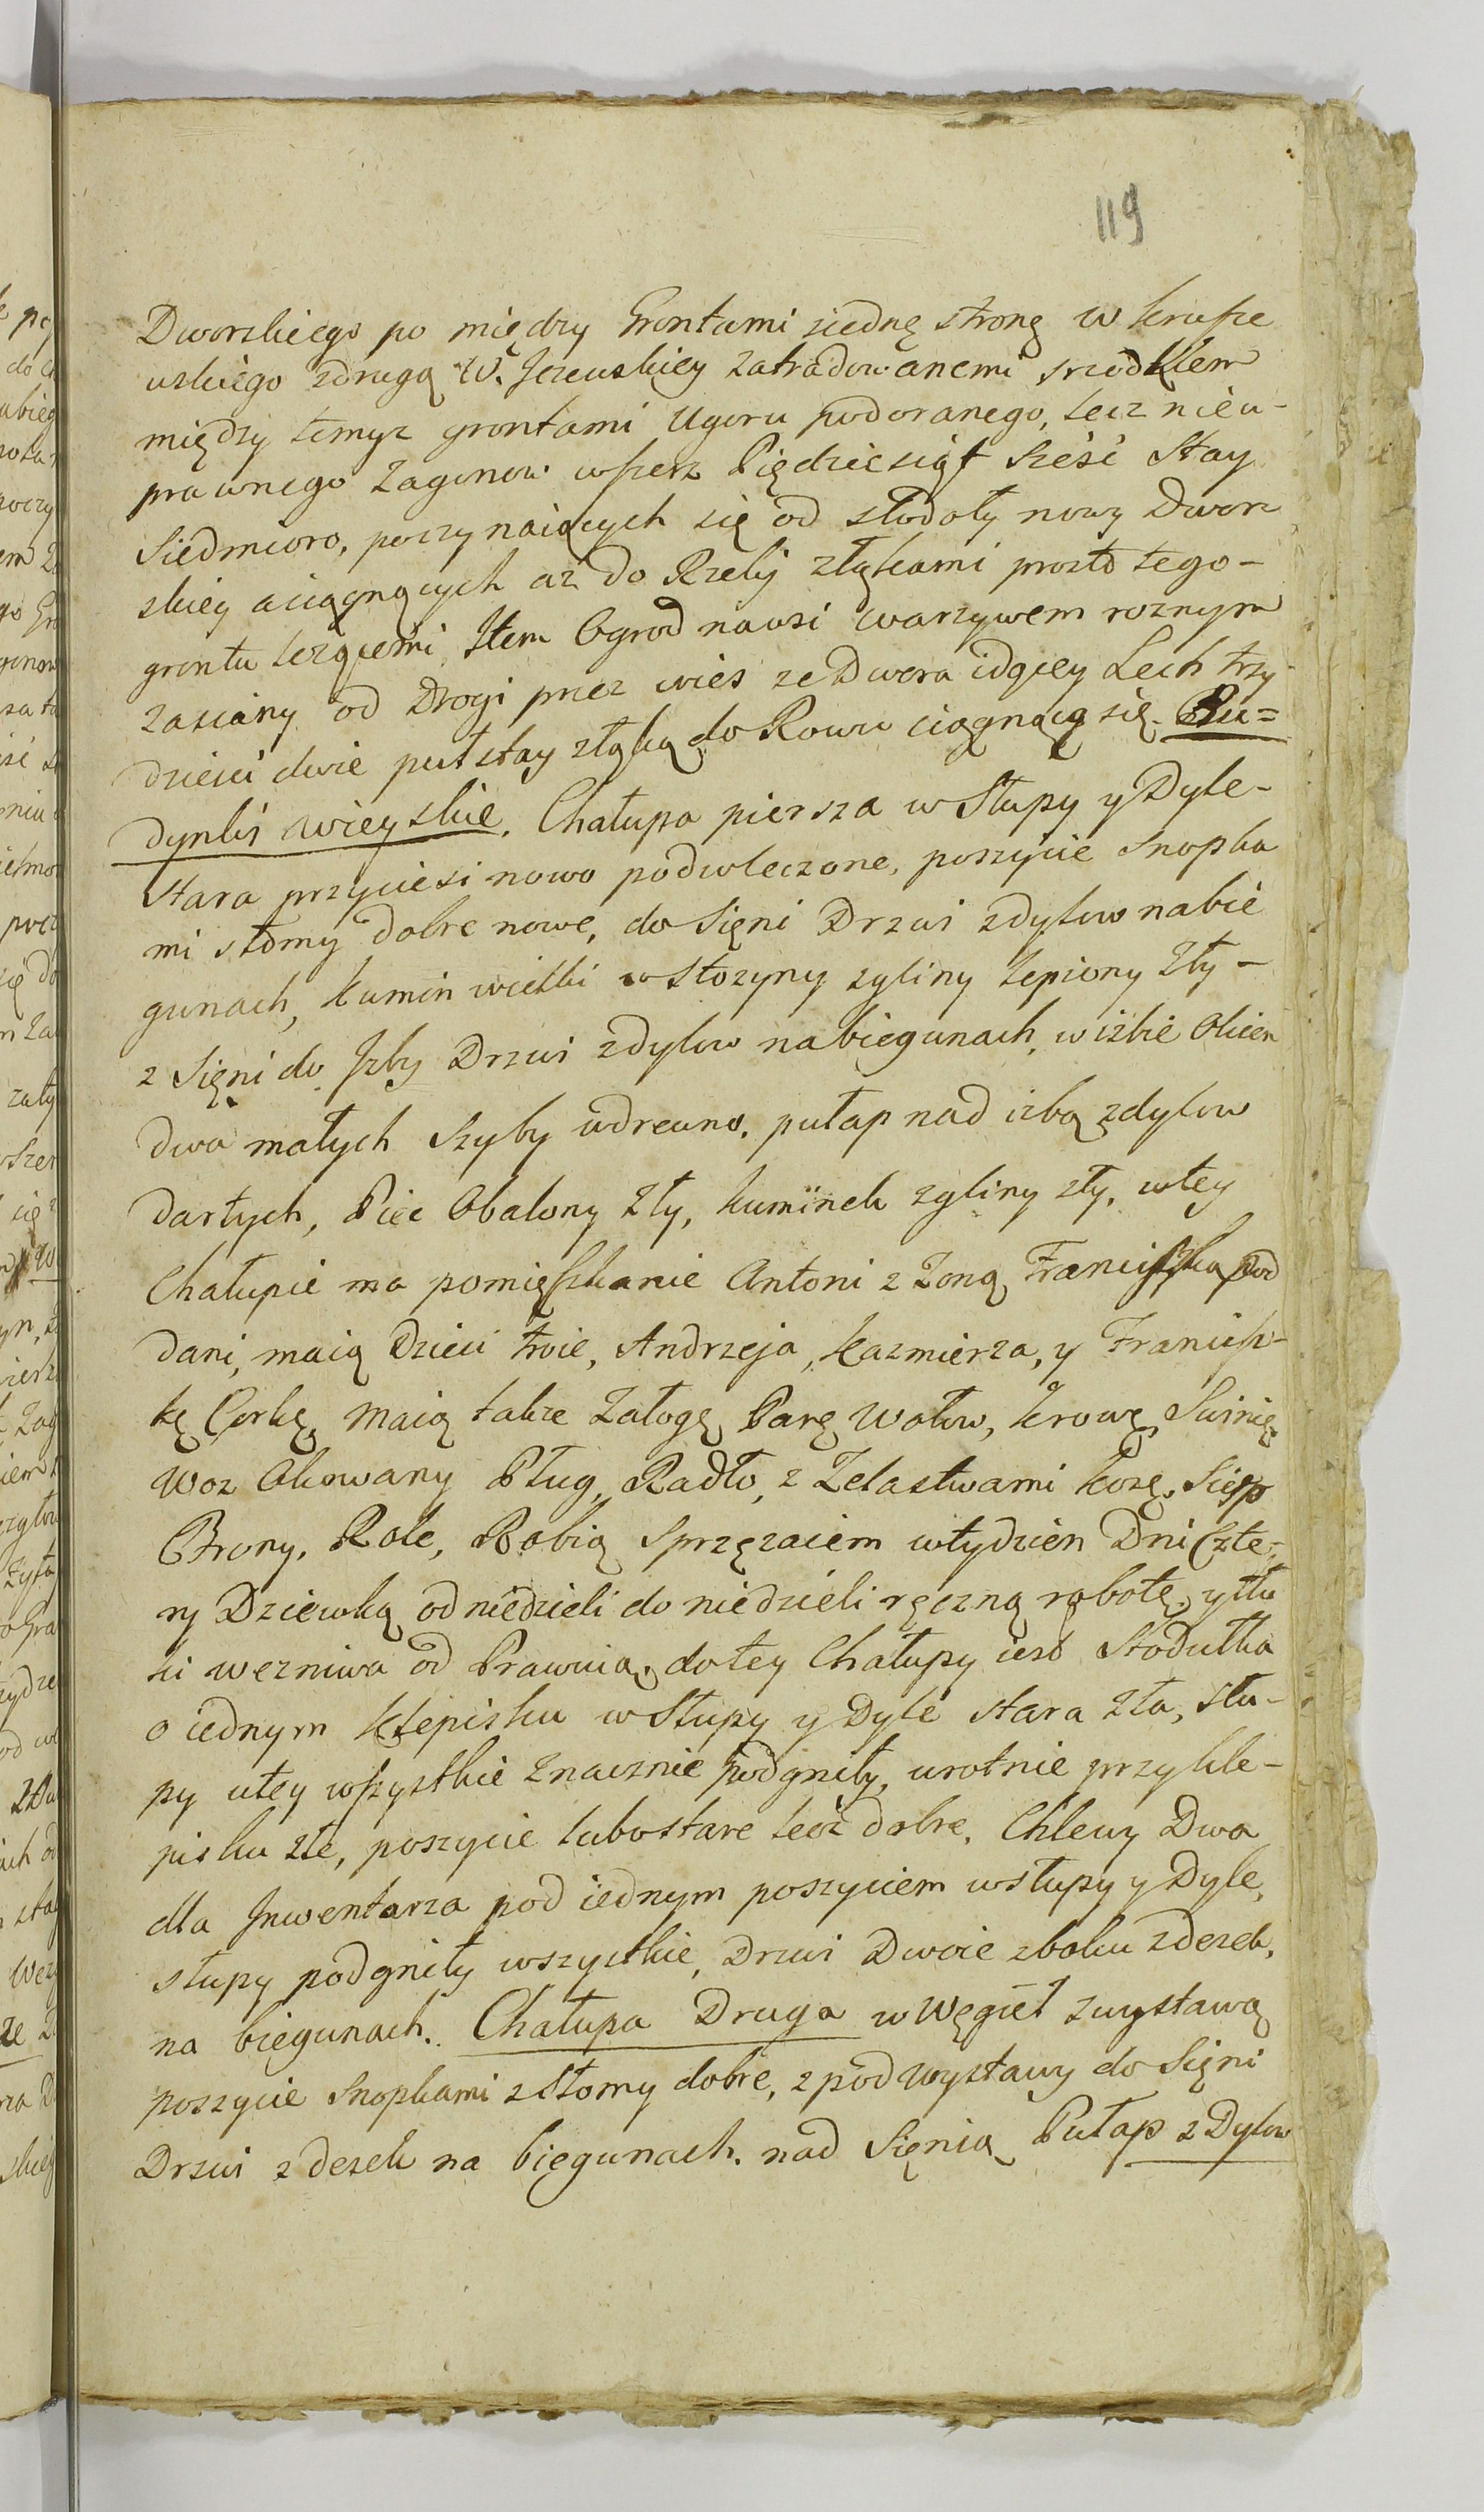 119
Dworskiego po między Grontami ziednę stronę W Krusze
uskiego zdrugą W. Jezeuskiey zatradowanemi srzodkiem
między temyz grontami Ugoru podoranego, lecz nieu-
prawnego Zagonow wszerz Piędziesiąt Sześć Stay
Siedmioro, poczynaiących się od stodoły nowy Dwor
skiey aciągnących aż do Rzeky złąkami prosto tego-
grontu leżącemi, Item Ogrod nawsi warzywem roznym
zasiany od Drogi przez wies ze Dwora idącey Lech trzy
dzieści dwie pułstay złąką do Rowu ciągnącą się. Bu=
dynki wieyskie. Chałupa piersza w Słupy y Dyle-
stara przyciesi nowo podwleczone, poszycie snopka
mi słomy dobre nowe, do Sięni Drzwi zdylow nabie
gunach, kumin wielki w Stozyny zgliny lepiony zły-
z Sięni do Izby Drzwi zdylow nabiegunach, w izbie Okien
dwa małych Szyby wdrewno. pułap nad izbą zdylow
dartych, Piec Obalony zły, kuminek zgliny zły, wtey
Chałupie ma pomięszkanie Antoni z Zoną Franciszką pod
dani, maią Dzieci troie, Andrzeja, Kazmierza, y Francisz-
kę Corkę, maią także Załogę Parę Wołow, krowę, Swinię
Woz Okowany Pług, Radło, z Zelastwami kosę, Sierp
Brony, Role, Robią Sprzęzaiem wtydzien Dni Czte-
ry Dziewką od niedzieli do niedzieli ręczną robotę, ytłu
ki wezniwa od Prawuią, dotey Chałupy iest Stodułka
o iednym klepisku w Słupy y Dyle stara zła, słu-
py utey wszystkie znacznie podgniły, wrotnie przykle-
pisku złe, poszycie lubostare lecz dobre. Chlewy Dwa
dla Inwentarza pod iednym poszyciem wsłupy y Dyle,
słupy podgniły wszystkie, Drzwi Dwoie zboku zdesek,
na biegunach. Chałupa Druga w Węgieł zwystawą
poszycie Snopkami z Słomy dobre, z pod wystawy do Sięni
Drzwi z desek na biegunach. nad Sięnią Pułap z Dylow